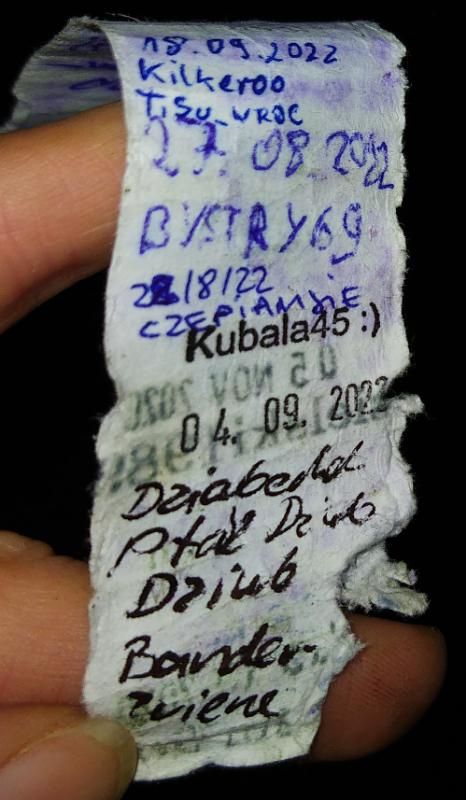 18.09.2022
Kilkeroo
TiSo_WROC
27.08.2022
BYSTRY69
28/8/22
CZEPIAMSIE
Kubala45 :)
05 NOV 2020
04.09.2022
Ptak Dziub
Dziub
Bander-
zwiene